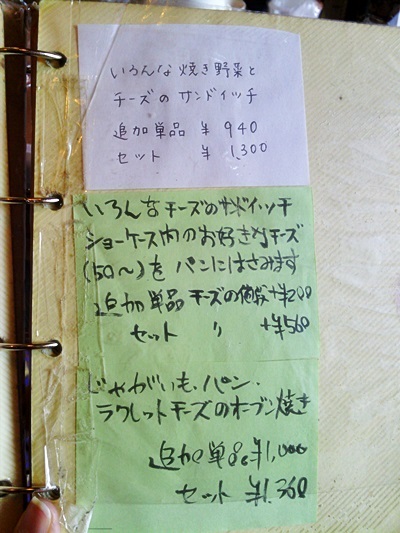 いろんな焼き野菜と
チーズのサンドイッチ
追加単品 ¥940
セット ¥1,300
いろんなチーズのサンドイッチ
ショーケース内のお好きなチーズ
(50〜)を パンにはさみます
追加単品 チーズの値段+¥200
セット 〃 +¥560
じゃがいも、パン、
ラクレットチーズのオーブン焼き
追加単品 ¥1,000
セット ¥1,360